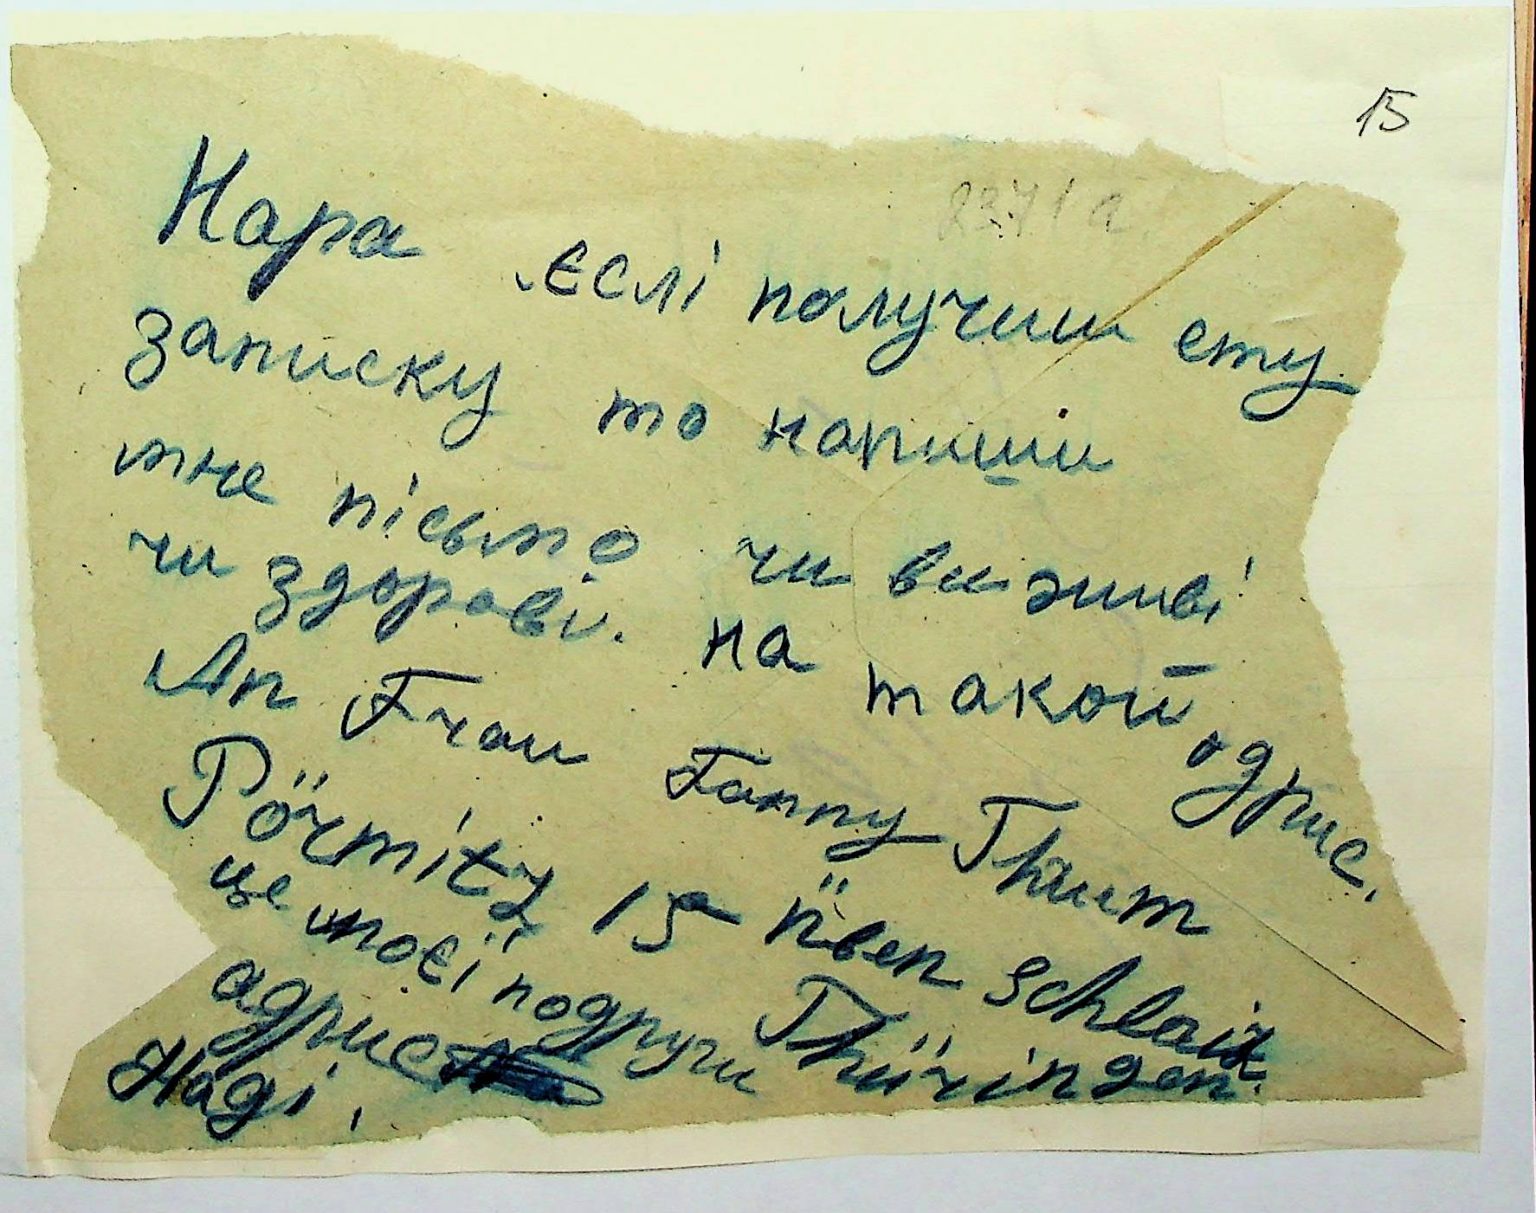 15
2371 а
Нара єслі получиш ету
записку то напиши
мне пісьмо чи ви живі
чи здорові. на такой адрис.
An Frau Fanny Thum
Pörmitz 15a üben Schlaiz
Thüringen.
це моєї подруги
адрис
Наді.